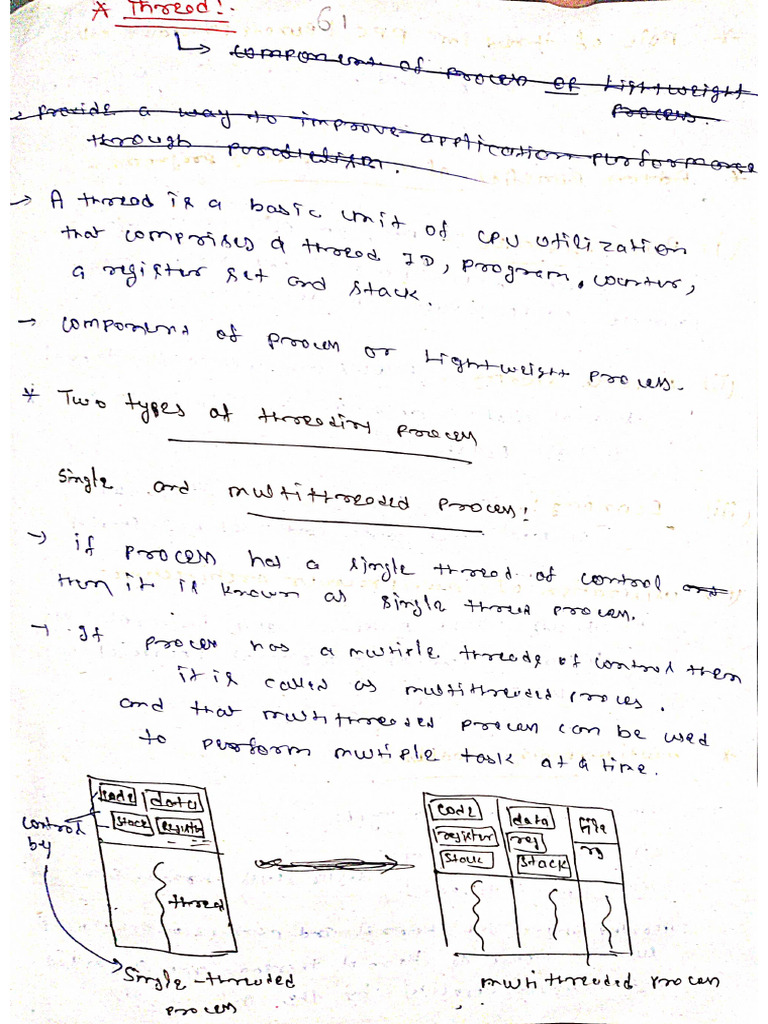 * Thread!.
61
component of process or lightweight
process.
provide a way to improve application performance
through parallelism.
→ A thread is a basic unit of CPU utilization
that comprises a thread ID, program, counter,
a register set and stack.
→ component of process or lightweight process.
* Two types of threading process
Single and multithreaded process!
→ if process has a single thread of control and
then it is known as single thread process.
→ If process has a multiple threads of control then
it is called as multithreaded process.
and that multithreaded process can be used
to perform multiple task at a time.
control
by
code data
stack register
thread
Single-threaded
process
code data file
register reg
stack stack
multithreaded process